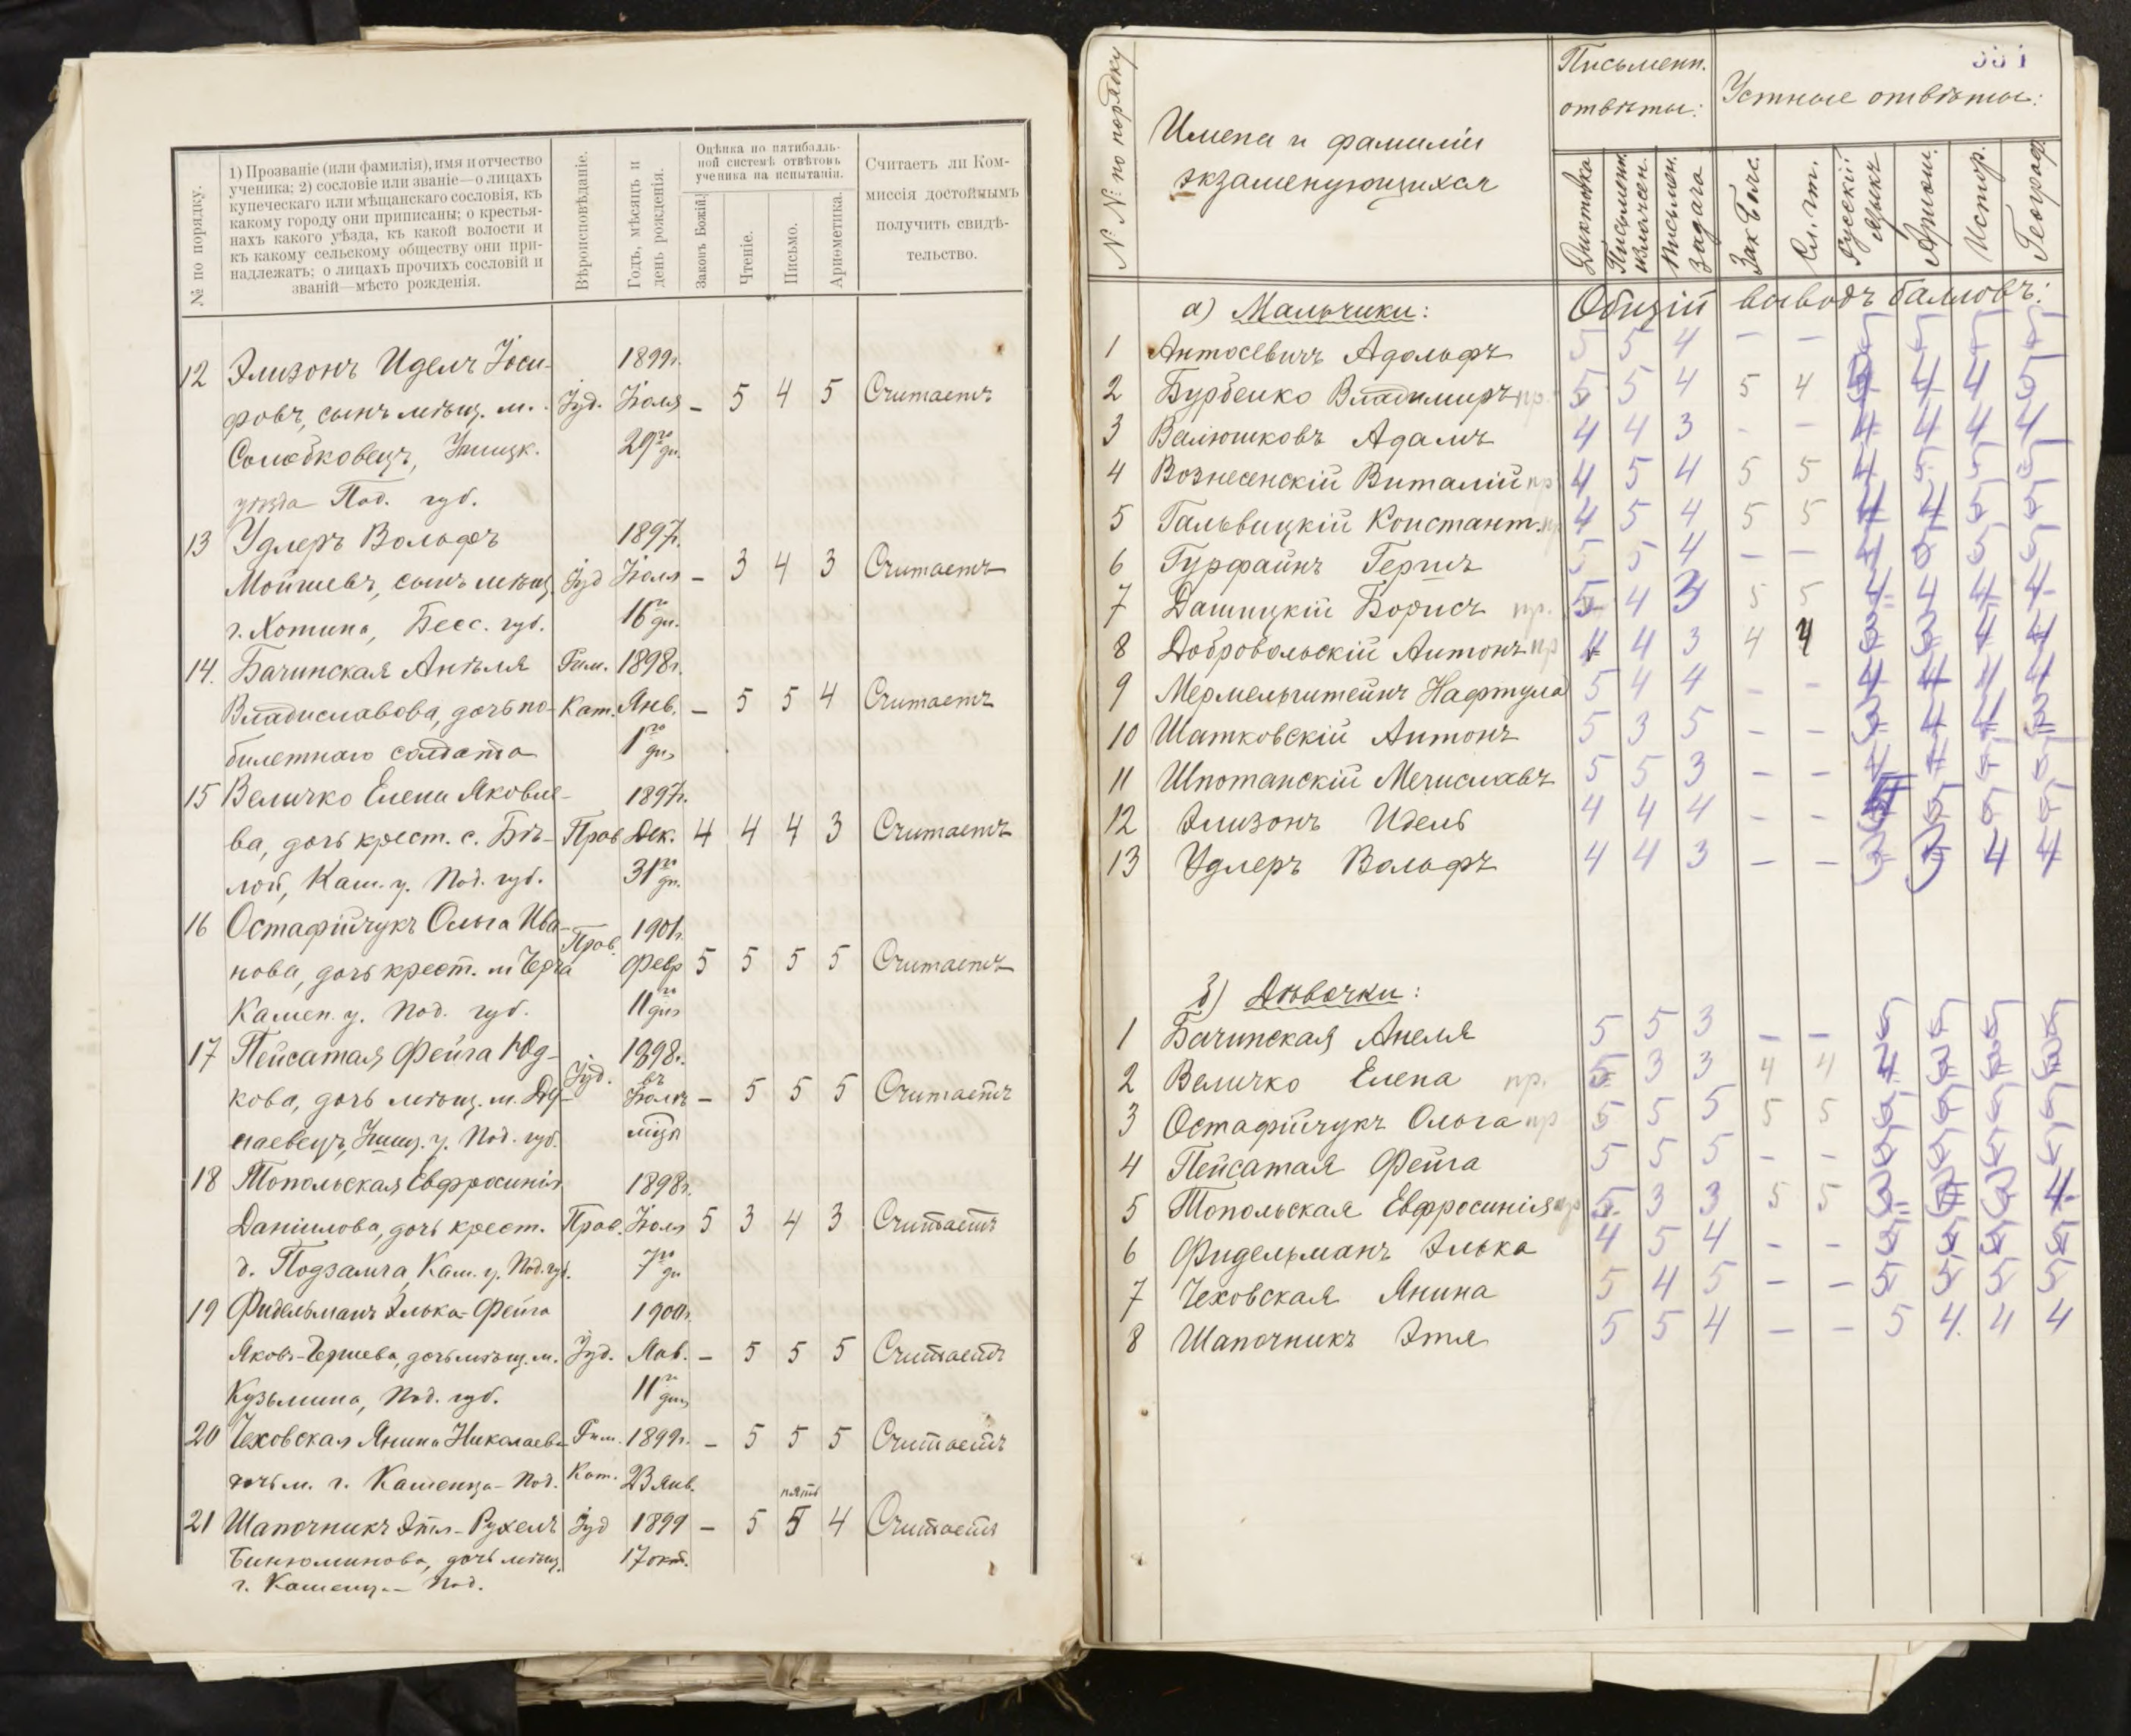 № по порядку.
1) Прозваніе (или фамилія), имя и отчество
ученика; 2) сословіе или званіе—о лицахъ
купеческаго или мѣщанскаго сословія, къ
какому городу они приписаны; о крестья-
нахъ какого уѣзда, къ какой волости и
къ какому сельскому обществу они при-
надлежатъ; о лицахъ прочихъ сословій и
званій—мѣсто рожденія.
Вѣроисповѣданіе.
Годъ, мѣсяцъ и
день рожденія.
Оцѣнка по пятибалль-
ной системѣ отвѣтовъ
ученика на испытаніи.
Законъ Божій.
Чтеніе.
Письмо.
Ариѳметика.
Считаетъ ли Ком-
миссія достойнымъ
получить свидѣ-
тельство.
12 Элизонъ Идель Іоси- 1899г.
фовъ, сынъ мѣщ. м. Іуд. Іюля – 5 4 5 Считаетъ
Солобковецъ, Ушицк. 29го дн.
уѣзда Под. губ.
13 Удлеръ Вольфъ 1897г.
Мойшевъ, сынъ мѣщ. Іуд Іюля – 3 4 3 Считаетъ
г. Хотина, Бесс. губ. 16го дн.
14. Бачинская Анѣля Рим. 1898г.
Владиславова, дочь по- Кат. Янв. – 5 5 4 Считаетъ
билетнаго солдата 1го дня
15 Величко Елена Яковле- 1897г.
ва, дочь крест. с. Бѣ- Прав Дек. 4 4 4 3 Считаетъ
лой, Кам. у. Под. губ. 31го дн.
16 Остафійчукъ Ольга Ива- Прав. 1901г.
нова, дочь крест. м Черча Февр 5 5 5 5 Считаетъ
Камен. у. Под. губ. 11го дня
17 Пейсатая Фейга Юд- 1898г.
кова, дочь мѣщ. м. Ду- Іуд. въ Іюлѣ – 5 5 5 Считаетъ
наевецъ, Ушиц. у. Под. губ. мѣця
18 Топольская Евфросинія 1898г.
Даніилова, дочь крест. Прав. Іюля 5 3 4 3 Считаетъ
д. Подзамча, Кам. у. Под. губ. 7го дн
19 Фидельманъ Элька-Фейга 1900г.
Яковъ-Гершева, дочь мѣщ. м. Іуд. Янв. – 5 5 5 Считаетъ
Кузьмина, Под. губ. 11го дня
20 Чеховская Янина Николаева Рим. 1899г. – 5 5 5 Считаетъ
дочь м. г. Каменца-Под. Кат. 23 Янв.
пять
21 Шапочникъ Этля-Рухель Іуд 1899 – 5 5 4 Считаетъ
Бинюминова, дочь мѣщ. 17 окт.
г. Каменца-Под.
551
№ № по порядку
Имена и фамиліи
экзаменующихся
Письменн.
отвѣты:
Устные отвѣты:
Диктовка
Письмен.
изложен.
Письмен.
задача
Зак. Бож.
Сл. чт.
Русскій
языкъ
Ариѳм.
Истор.
Географ.
а) Мальчики: Общій выводъ балловъ:
1 Антосевичъ Адольфъ 5 5 4 – – 5 5 5 5
2 Бурбенко Владимиръ пр. 5 5 4 5 4 4 4 5
3 Валюшковъ Адамъ 4 4 3 – – 4 4 4 4
4 Вознесенскій Виталій пр 4 5 4 5 5 4 5 5 5
5 Гальвицкій Констант. пр 4 5 4 5 5 4 4 5 5
6 Гурфайнъ Гершъ 5 5 4 – – 4 5 5 5
7 Дашицкій Борисъ пр. 5 4 3 5 5 4 4 4 4
8 Добровольскій Антонъ пр 4 4 3 4 4 3 3 4 4
9 Мермельштейнъ Нафтула 5 4 4 – – 4 4 4 4
10 Шатковскій Антонъ 5 3 5 – – 3 4 4 3
11 Шпотанскій Мечиславъ 5 5 3 – – 4 4 5 5
12 Элизонъ Идель 4 4 4 – – 5 5 5
13 Удлеръ Вольфъ 4 4 3 – – 3 3 4 4
б) Дѣвочки:
1 Бачинская Анеля 5 5 3 – – 5 5 5 5
2 Величко Елена пр. 5 3 3 4 4 4 3 3 3
3 Остафійчукъ Ольга пр 5 5 5 5 5 5 5 5 5
4 Пейсатая Фейга 5 5 5 – – 5 5 5 5
5 Топольская Евфросинія пр 5 3 3 5 5 3 3 3 4
6 Фидельманъ Элька 4 5 4 – – 5 5 5 5
7 Чеховская Янина 5 4 5 – – 5 5 5 5
8 Шапочникъ Этля 5 5 4 – – 5 4. 4 4